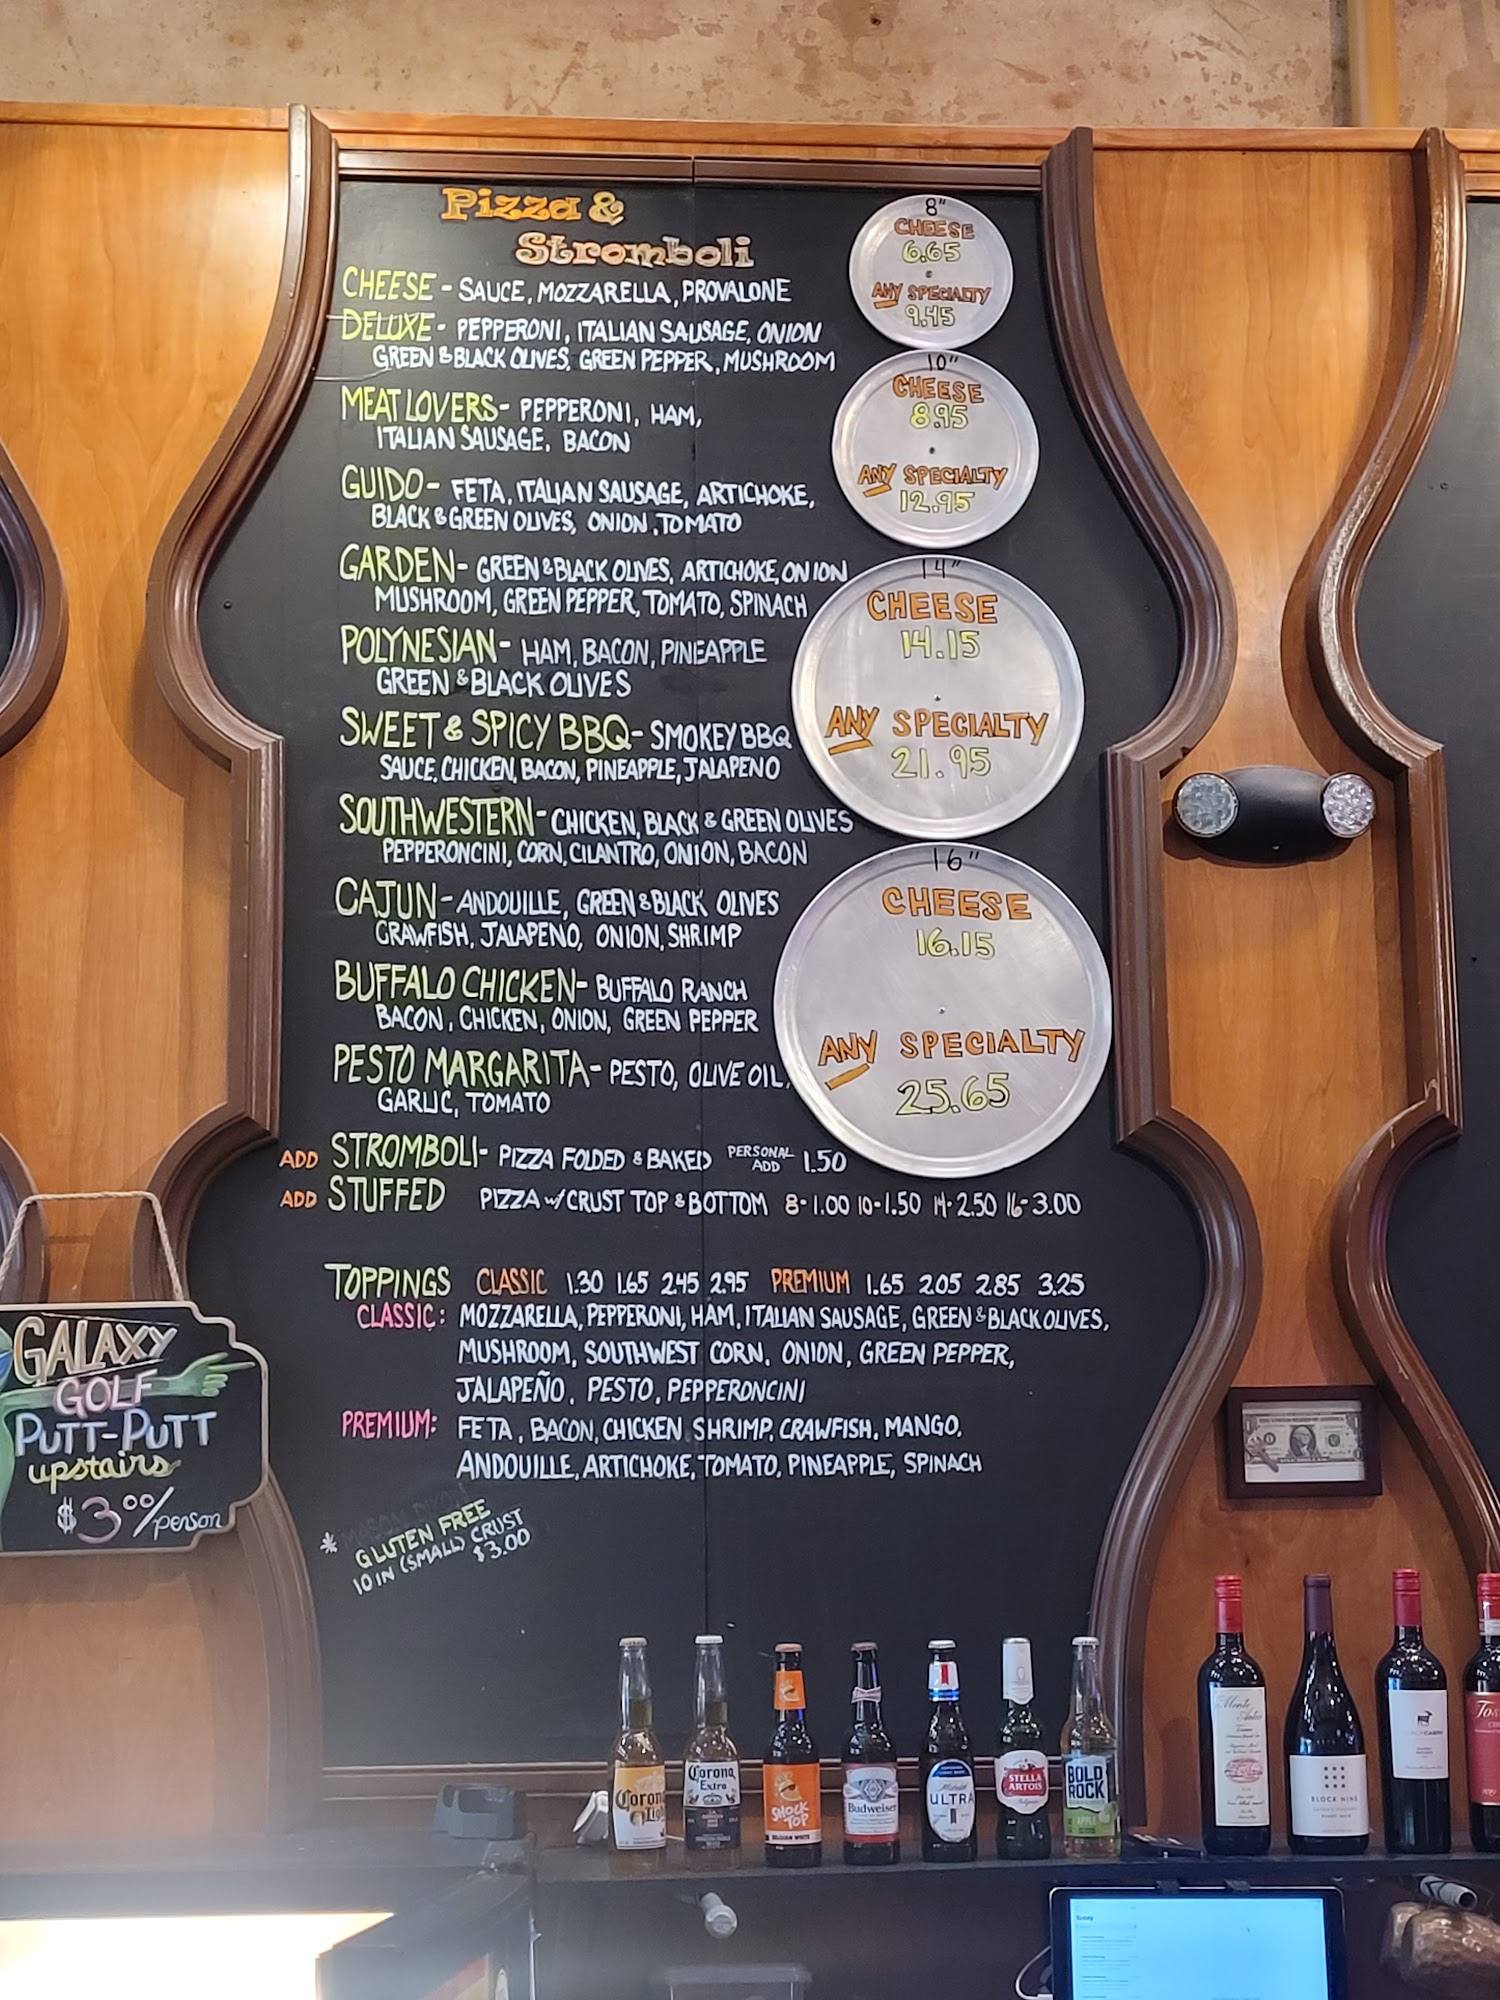 Pizza &
Stromboli
CHEESE - SAUCE, MOZZARELLA, PROVALONE
DELUXE - PEPPERONI, ITALIAN SAUSAGE, ONION
GREEN & BLACK OLIVES, GREEN PEPPER, MUSHROOM
MEAT LOVERS - PEPPERONI, HAM,
ITALIAN SAUSAGE, BACON
GUIDO - FETA, ITALIAN SAUSAGE, ARTICHOKE,
BLACK & GREEN OLIVES, ONION, TOMATO
GARDEN - GREEN & BLACK OLIVES, ARTICHOKE, ONION
MUSHROOM, GREEN PEPPER, TOMATO, SPINACH
POLYNESIAN - HAM, BACON, PINEAPPLE
GREEN & BLACK OLIVES
SWEET & SPICY BBQ - SMOKEY BBQ
SAUCE, CHICKEN, BACON, PINEAPPLE, JALAPENO
SOUTHWESTERN - CHICKEN, BLACK & GREEN OLIVES
PEPPERONCINI, CORN, CILANTRO, ONION, BACON
CAJUN - ANDOUILLE, GREEN & BLACK OLIVES
CRAWFISH, JALAPENO, ONION, SHRIMP
BUFFALO CHICKEN - BUFFALO RANCH
BACON, CHICKEN, ONION, GREEN PEPPER
PESTO MARGARITA - PESTO, OLIVE OIL,
GARLIC, TOMATO
ADD STROMBOLI - PIZZA FOLDED & BAKED PERSONAL ADD 1.50
ADD STUFFED PIZZA w/ CRUST TOP & BOTTOM 8-1.00 10-1.50 14-2.50 16-3.00
8"
CHEESE
6.65
ANY SPECIALTY
9.45
10"
CHEESE
8.95
ANY SPECIALTY
12.95
14"
CHEESE
14.15
ANY SPECIALTY
21.95
16"
CHEESE
16.15
ANY SPECIALTY
25.65
TOPPINGS CLASSIC 1.30 1.65 2.45 2.95 PREMIUM 1.65 2.05 2.85 3.25
CLASSIC: MOZZARELLA, PEPPERONI, HAM, ITALIAN SAUSAGE, GREEN & BLACK OLIVES,
MUSHROOM, SOUTHWEST CORN, ONION, GREEN PEPPER,
JALAPEÑO, PESTO, PEPPERONCINI
PREMIUM: FETA, BACON, CHICKEN SHRIMP, CRAWFISH, MANGO,
ANDOUILLE, ARTICHOKE, TOMATO, PINEAPPLE, SPINACH
* GLUTEN FREE
10 IN (SMALL) CRUST
$3.00
GALAXY
GOLF
PUTT-PUTT
upstairs
$3.00/person
Corona
Light
Corona
Extra
SHOCK
TOP
BELGIAN WHITE
Budweiser
Michelob
ULTRA
STELLA
ARTOIS
BOLD
ROCK
APPLE
BLOCK NINE
PINOT NOIR
Today